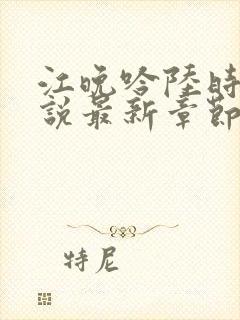 江晚吟陸時
說最新章節
特尼